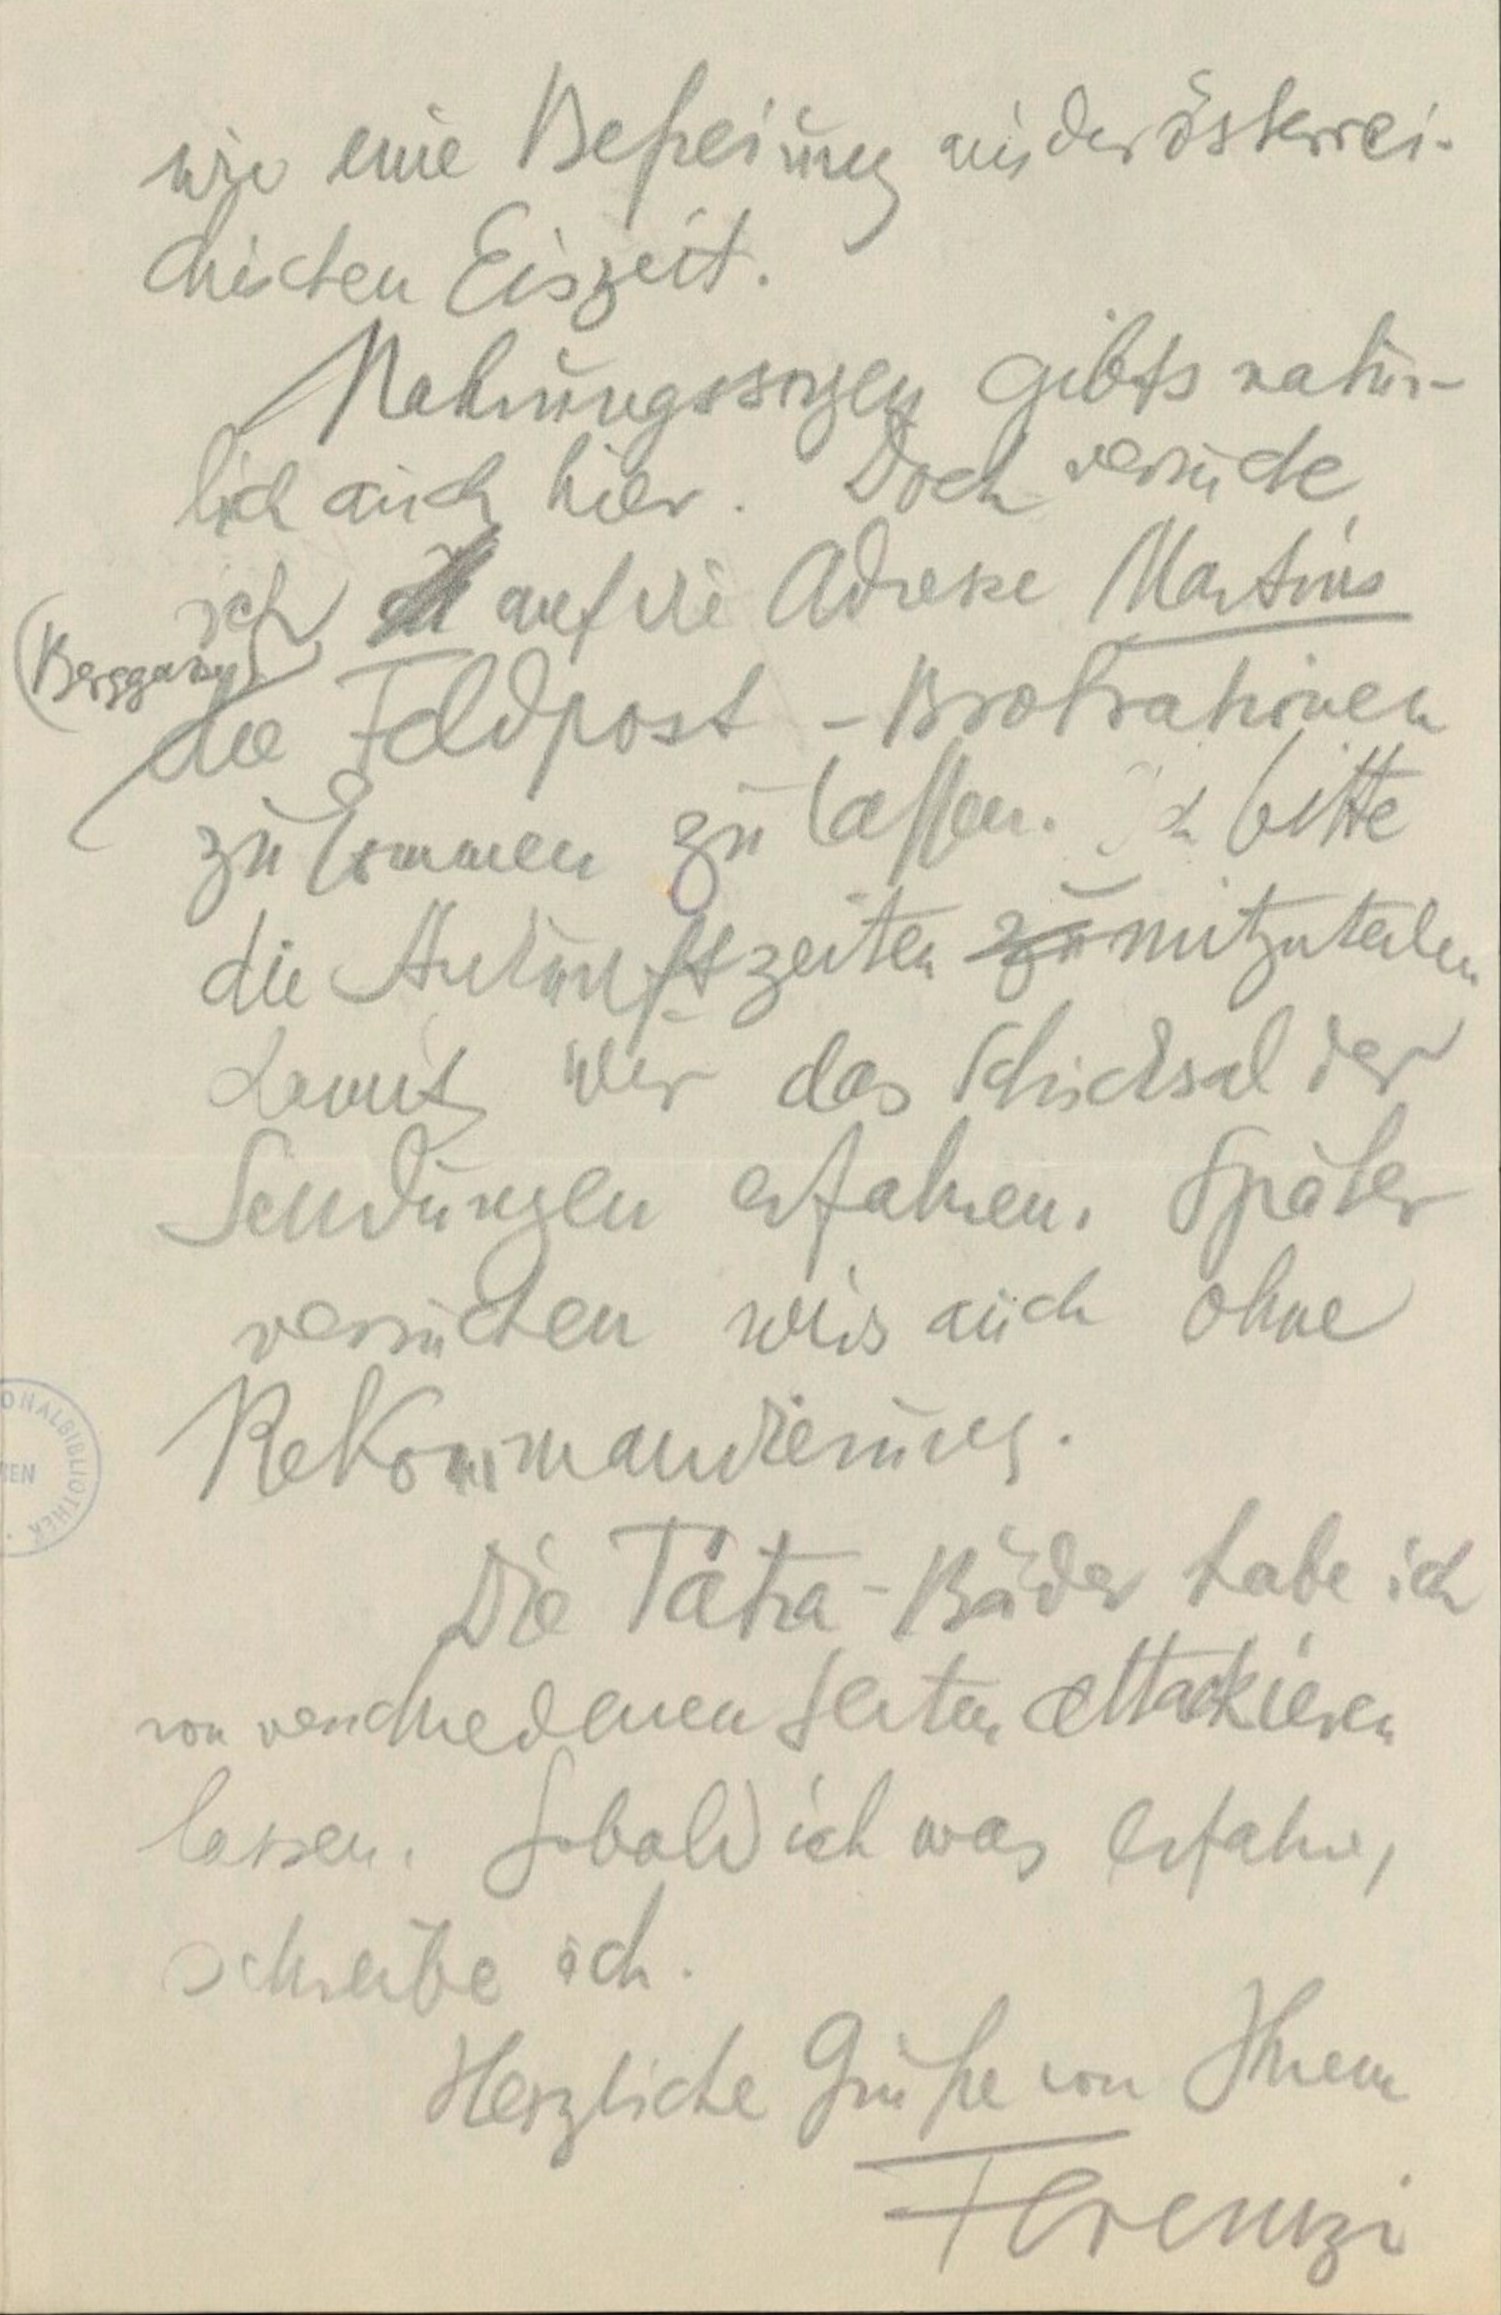 wie eine Befreiung aus der österrei-
chischen Eiszeit.
Nahrungssorgen gibts natür-
lich auch hier. Doch versuche
ich auf die Adresse Martins
(Bergganz)
die Feldpost-Brotrationen
zukommen zu lassen. Ich bitte
die Ankunftszeiten zu mitzuteilen
damit wir das Schicksal der
Sendungen erfahren. Später
versuchen wirs auch ohne
Rekommandierung.
Die Tátra-Bäder habe ich
von verschiedenen Seiten attackieren
lassen. Sobald ich was erfahre,
schreibe ich.
Herzliche Grüße von Ihrem
Ferenczi
ONALBIBLIOTHEK
IEN